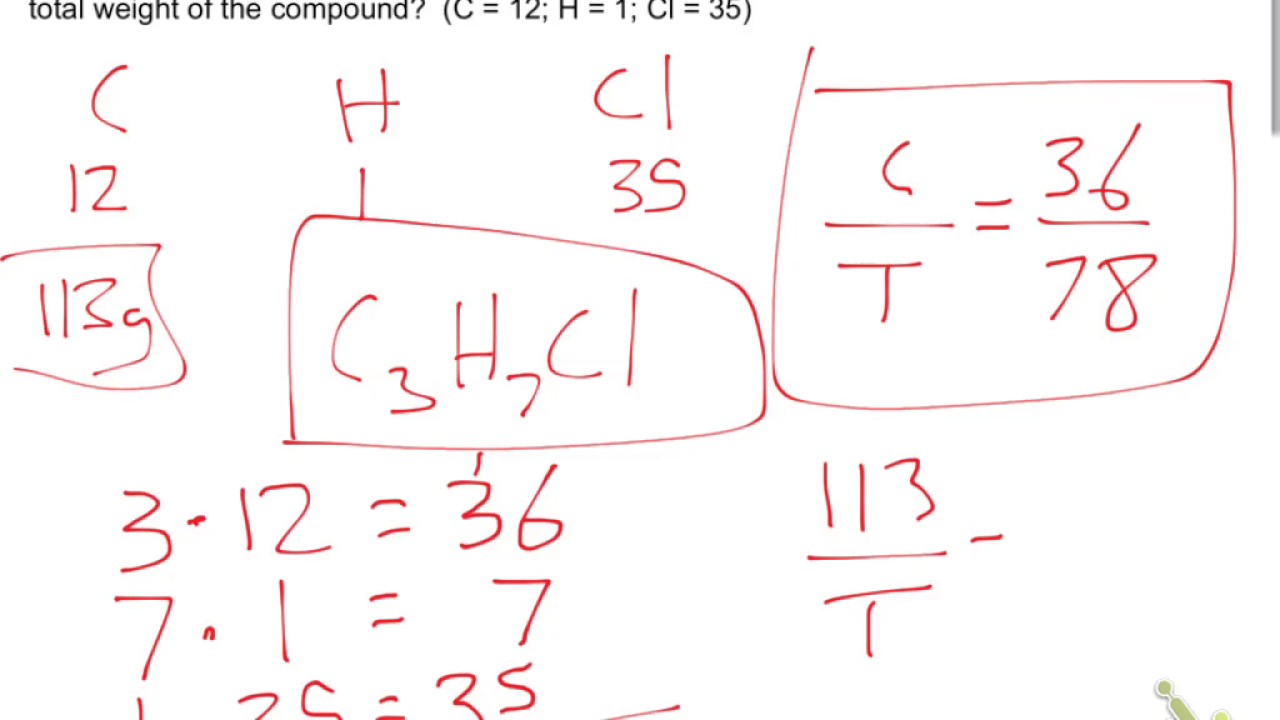 total weight of the compound? (C = 12; H = 1; Cl = 35)
C H Cl
12 1 35
113g
C3H7Cl
C/T = 36/78
3 · 12 = 36
7 · 1 = 7
1 35 = 35
113/T =